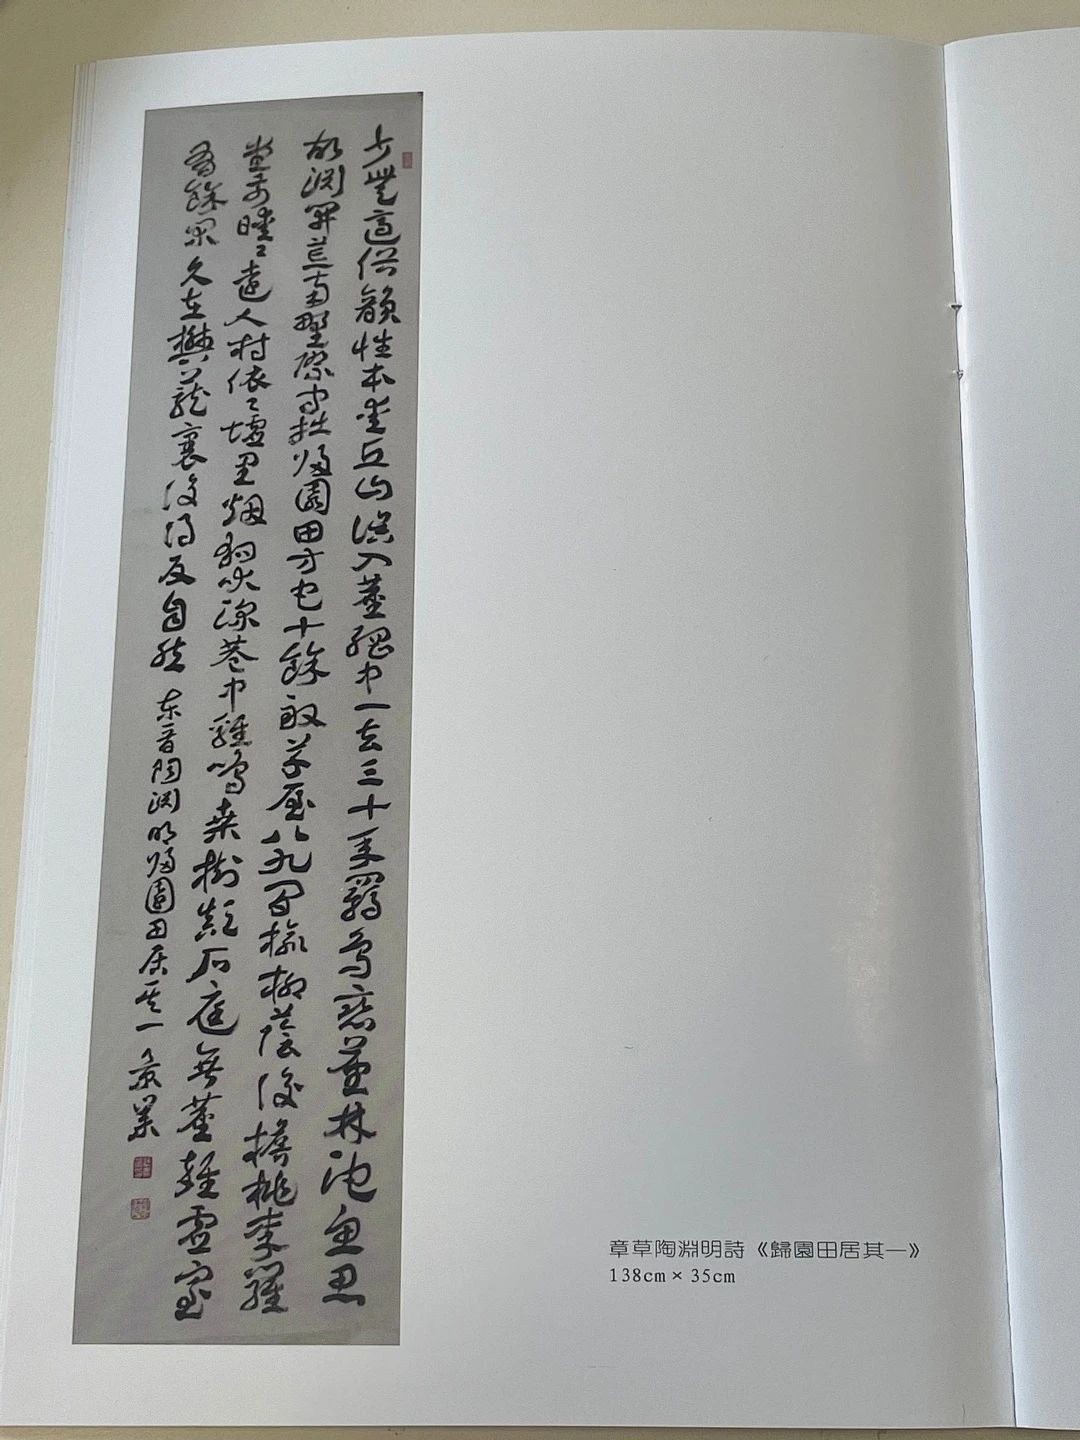 少無適俗韻性本愛丘山誤入塵網中一去三十年羈鳥戀舊林池魚思
故淵開荒南野際守拙歸園田方宅十餘畝草屋八九間榆柳蔭後檐桃李羅
堂前曖〻遠人村依〻墟里烟狗吠深巷中雞鳴桑樹顛戶庭無塵雜虛室
有餘閑久在樊籠裏復得反自然
东晋陶渊明归園田居其一
章草陶淵明詩《歸園田居其一》
138cm×35cm